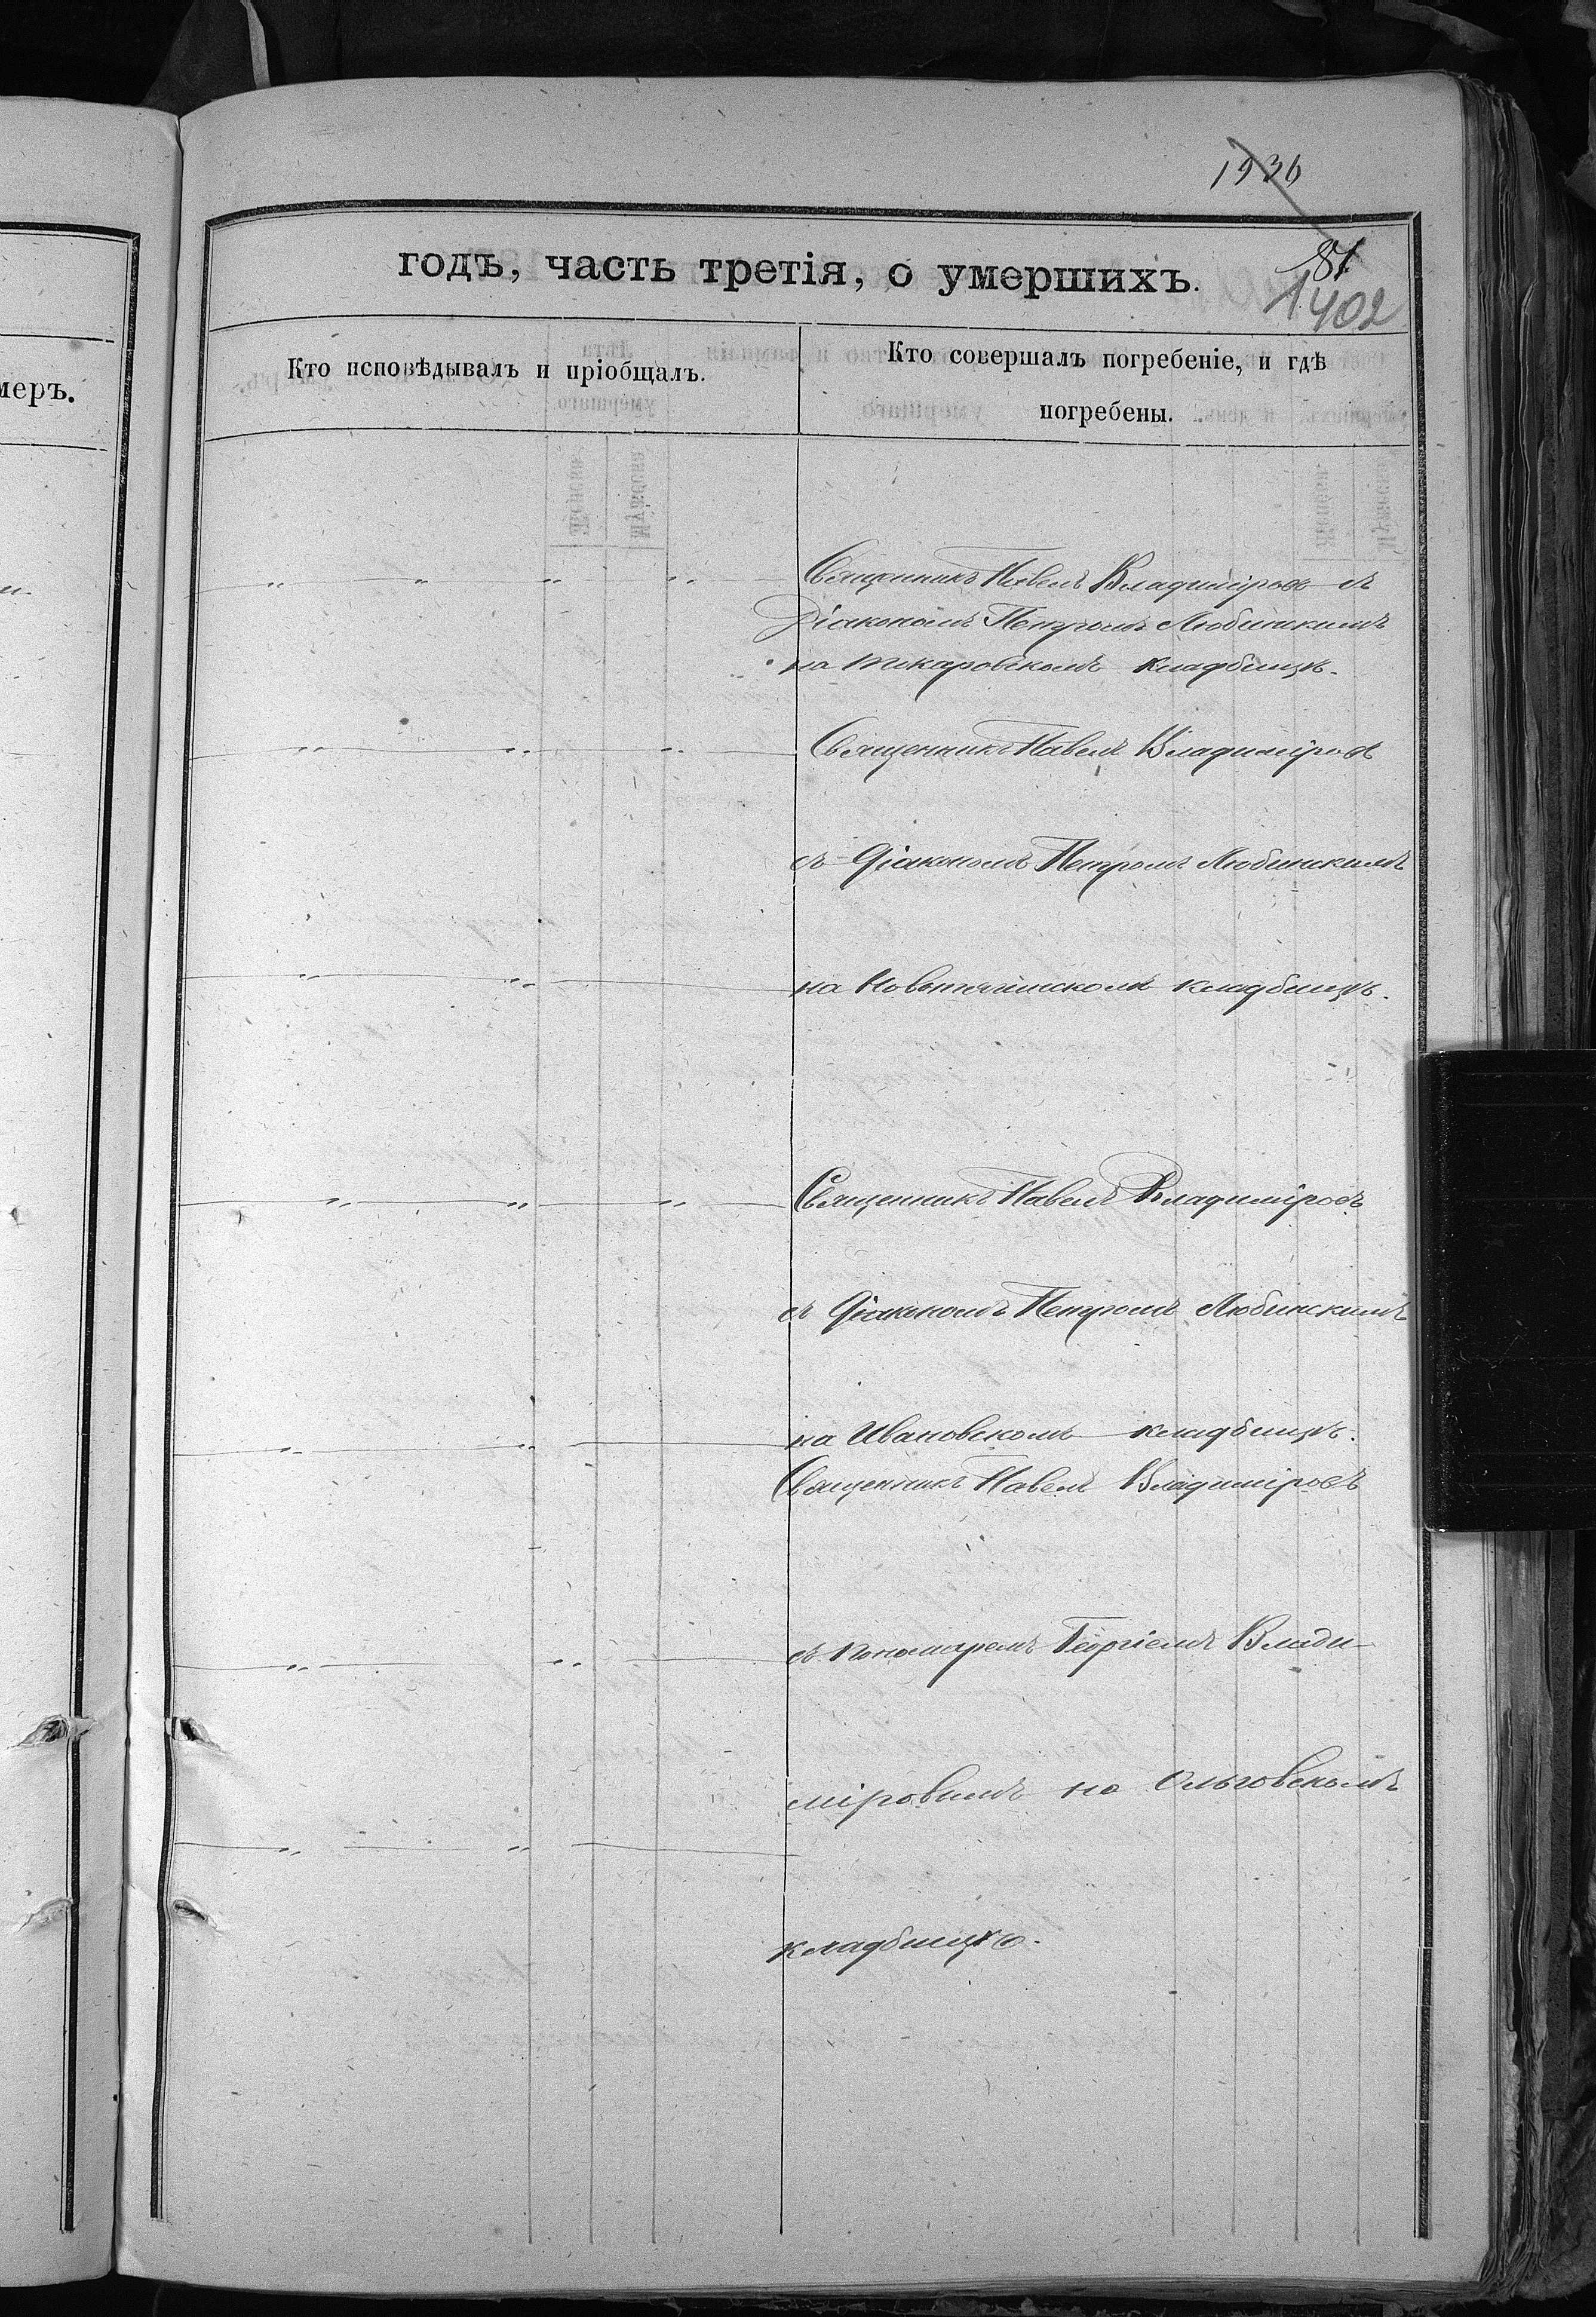 1936
годъ, часть третія, о умершихъ.
81
1402
Кто исповѣдывалъ и пріобщалъ.
Кто совершалъ погребеніе, и гдѣ
погребены.
меръ.
Священникъ Павелъ Владиміровъ съ
Діакономъ Петромъ Любинскимъ
на Токаровскомъ кладбищѣ.
Священникъ Павелъ Владиміровъ
съ Діакономъ Петромъ Любинскимъ
на кладбищѣ.
Священникъ Павелъ Владиміровъ
съ Діакономъ Петромъ Любинскимъ
на Ивановскомъ кладбищѣ.
Священникъ Павелъ Владиміровъ
съ Пономаремъ Георгіемъ Влади-
міровымъ на Ольговскомъ
кладбищѣ.